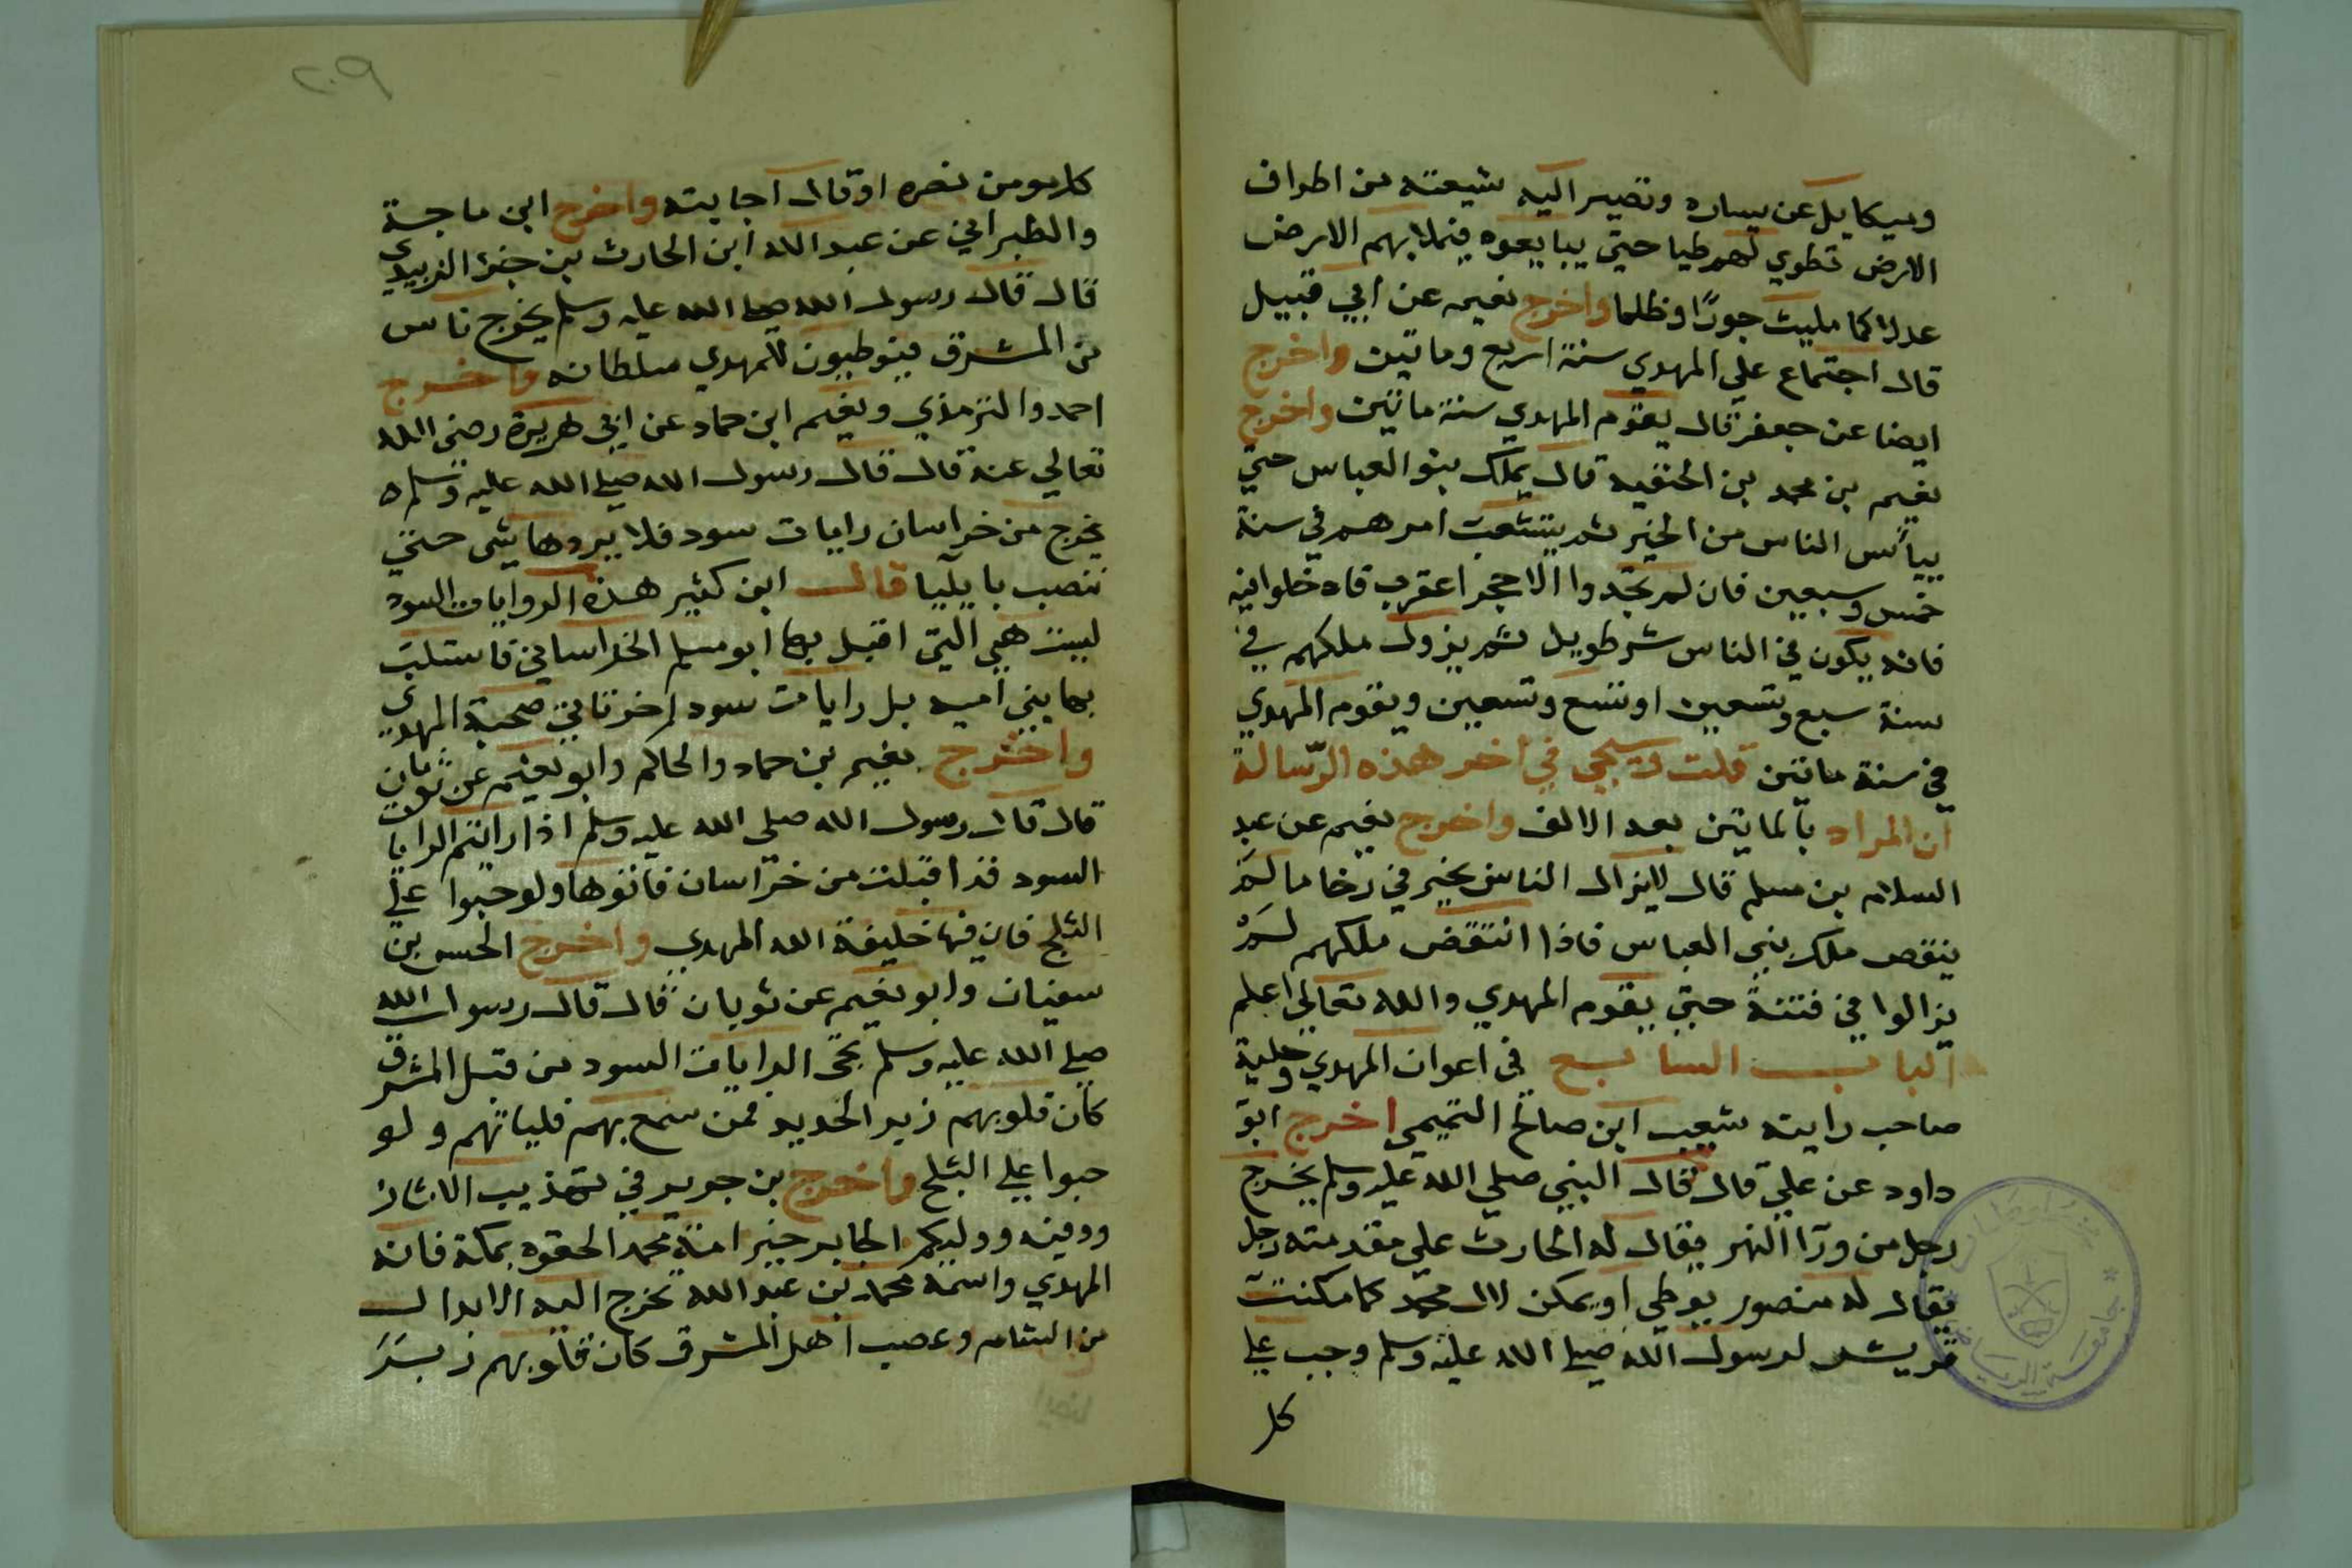 وميكايل عن يساره وتصير اليه شيعته من اطراف
الارض تطوي لهم طيا حتي يبايعوه فيملا بهم الارض
عدلا كما مليت جورًا وظلما واخرج نعيم عن ابي قبيل
قال اجتماع علي المهدي سنة اربع وماتين واخرج
ايضا عن جعفر قال يقوم المهدي سنة ماتين واخرج
نعيم بن محمد بن الحنفيه قال يملك بنو العباس حتي
ييأس الناس من الخير ثم يتشعب امرهم في سنة
خمس وسبعين فان لم تجدوا الا جحر اعقرب فادخلوا فيه
فانه يكون في الناس شر طويل ثم يزول ملكهم في
سنة سبع وتسعين او تسع وتسعين ويقوم المهدي
في سنة ماتين قلت سيجي في اخر هذه الرّسالة
ان المراد بالماتين بعد الالف واخرج نعيم عن عبد
السلام بن مسلم قال لايزال الناس بخير في رخا ما لم
ينقص ملك بني العباس فاذا انتقض ملكهم لم
يزالوا في فتنة حتي يقوم المهدي والله تعالي اعلم
الباب السابع في اعوان المهدي وحلية
صاحب رايته شعيب ابن صالح التميمي اخرج ابو
داود عن علي قال قال النبي صلي الله عليه وسلم يخرج
رجل من ورآ النهر يقال له الحارث علي مقدمته رجل
يقال له منصور يوطي او يمكن لال محمد كما مكنت
قريش لرسول الله صلي الله عليه وسلم وجب علي
كل
٢٠٩
كل مومن نصره او قال اجابته واخرج ابن ماجة
والطبراني عن عبد الله ابن الحارث بن جزء الزبيدي
قال قال رسول الله صلي الله عليه وسلم يخرج ناس
من المشرق فيوطيون للمهدي سلطانه واخرج
احمد والترمذي ونعيم ابن حماد عن ابي هريرة رضي الله
تعالي عنه قال قال رسول الله صلي الله عليه وسلم
يخرج من خراسان رايات سود فلا يردها شي حتي
تنصب بايليا قال ابن كثير هذه الروايات السود
ليست هي التي اقبل بها ابو مسلم الخراساني فاستلب
بها بني اميه بل رايات سود اخر تاتي صحبة المهدي
واخرج نعيم بن حماد والحاكم وابو نعيم عن ثوبان
قال قال رسول الله صلى الله عليه وسلم اذا رايتم الرايات
السود قد اقبلت من خراسان فاتوها ولو حبوا علي
الثلج فان فيها خليفة الله المهدي واخرج الحسن بن
سفيان وابو نعيم عن ثوبان قال قال رسول الله
صلي الله عليه وسلم تجي الرايات السود من قبل المشرق
كان قلوبهم زبر الحديد فمن سمع بهم فلياتهم ولو
حبوا علي الثلج واخرج بن جرير في تهذيب الاثار
ووليكم الجابر خير امة محمد الحقوه بمكة فانه
المهدي واسمه محمد بن عبد الله تخرج اليه الابدال
من الشام وعصب اهل المشرق كان قلوبهم زبر
جامعة الرياض